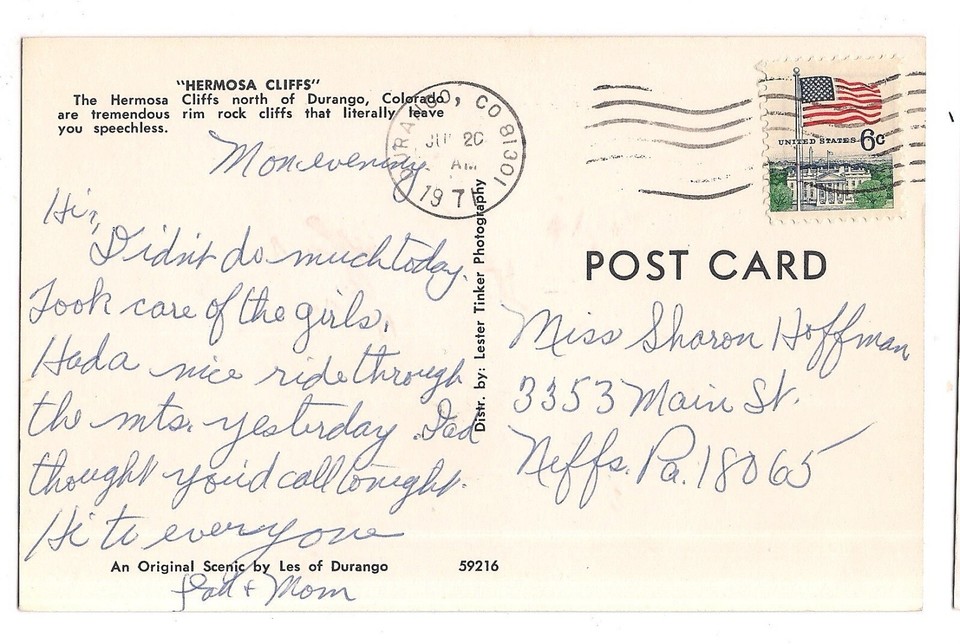 "HERMOSA CLIFFS"
The Hermosa Cliffs north of Durango, Colorado
are tremendous rim rock cliffs that literally leave
you speechless.
Mon evening.
Hi,
Didn't do much today.
Took care of the girls.
Had a nice ride through
the mts. yesterday. Dad
thought you'd call tonight.
Hi to everyone
Dad + Mom
An Original Scenic by Les of Durango
59216
Distr. by: Lester Tinker Photography
DURANGO, CO 81301
20
AM
197
UNITED STATES 6c
POST CARD
Miss Sharon Hoffman
3353 Main St.
Neffs. Pa. 18065